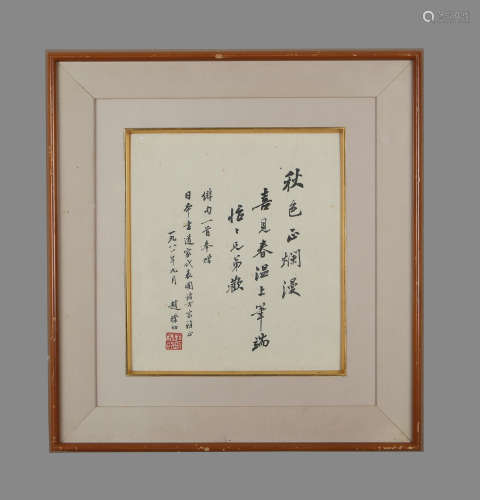 秋色正爛漫
喜見春温上筆端
怡怡兄弟歡
俳句一首奉贈
日本書道家代表團諸方家雅正
一九八八年九月
趙樸初